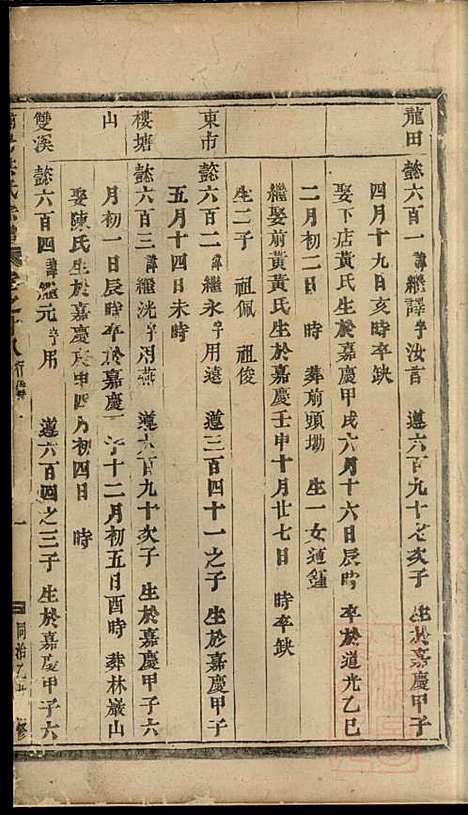 龍田 懿六百一 諱繼譯字汝言 遵六百九十七次子 生於嘉慶甲子
四月十九日亥時卒缺
娶下店黃氏生於嘉慶甲戌六月十六日辰時 卒於道光乙巳
二月初二日 時 葬前頭坳 生一女適鍾
繼娶前黃黃氏生於嘉慶壬申十月廿七日 時卒缺
生二子 祖佩 祖俊
東市 懿六百二 諱繼永字用遠 遵三百四十一之子 生於嘉慶甲子
五月十四日未時
樓塘 懿六百三 諱繼洸字用燕 遵六百九十次子 生於嘉慶甲子六
山 月初一日辰時卒於嘉慶 子十二月初五日酉時 葬林巖山
娶陳氏生於嘉慶庚申四月初四日 時
雙溪 懿六百四 諱繼元字用 遵六百四之三子 生於嘉慶甲子六
行傳 一 同治乙丑 修